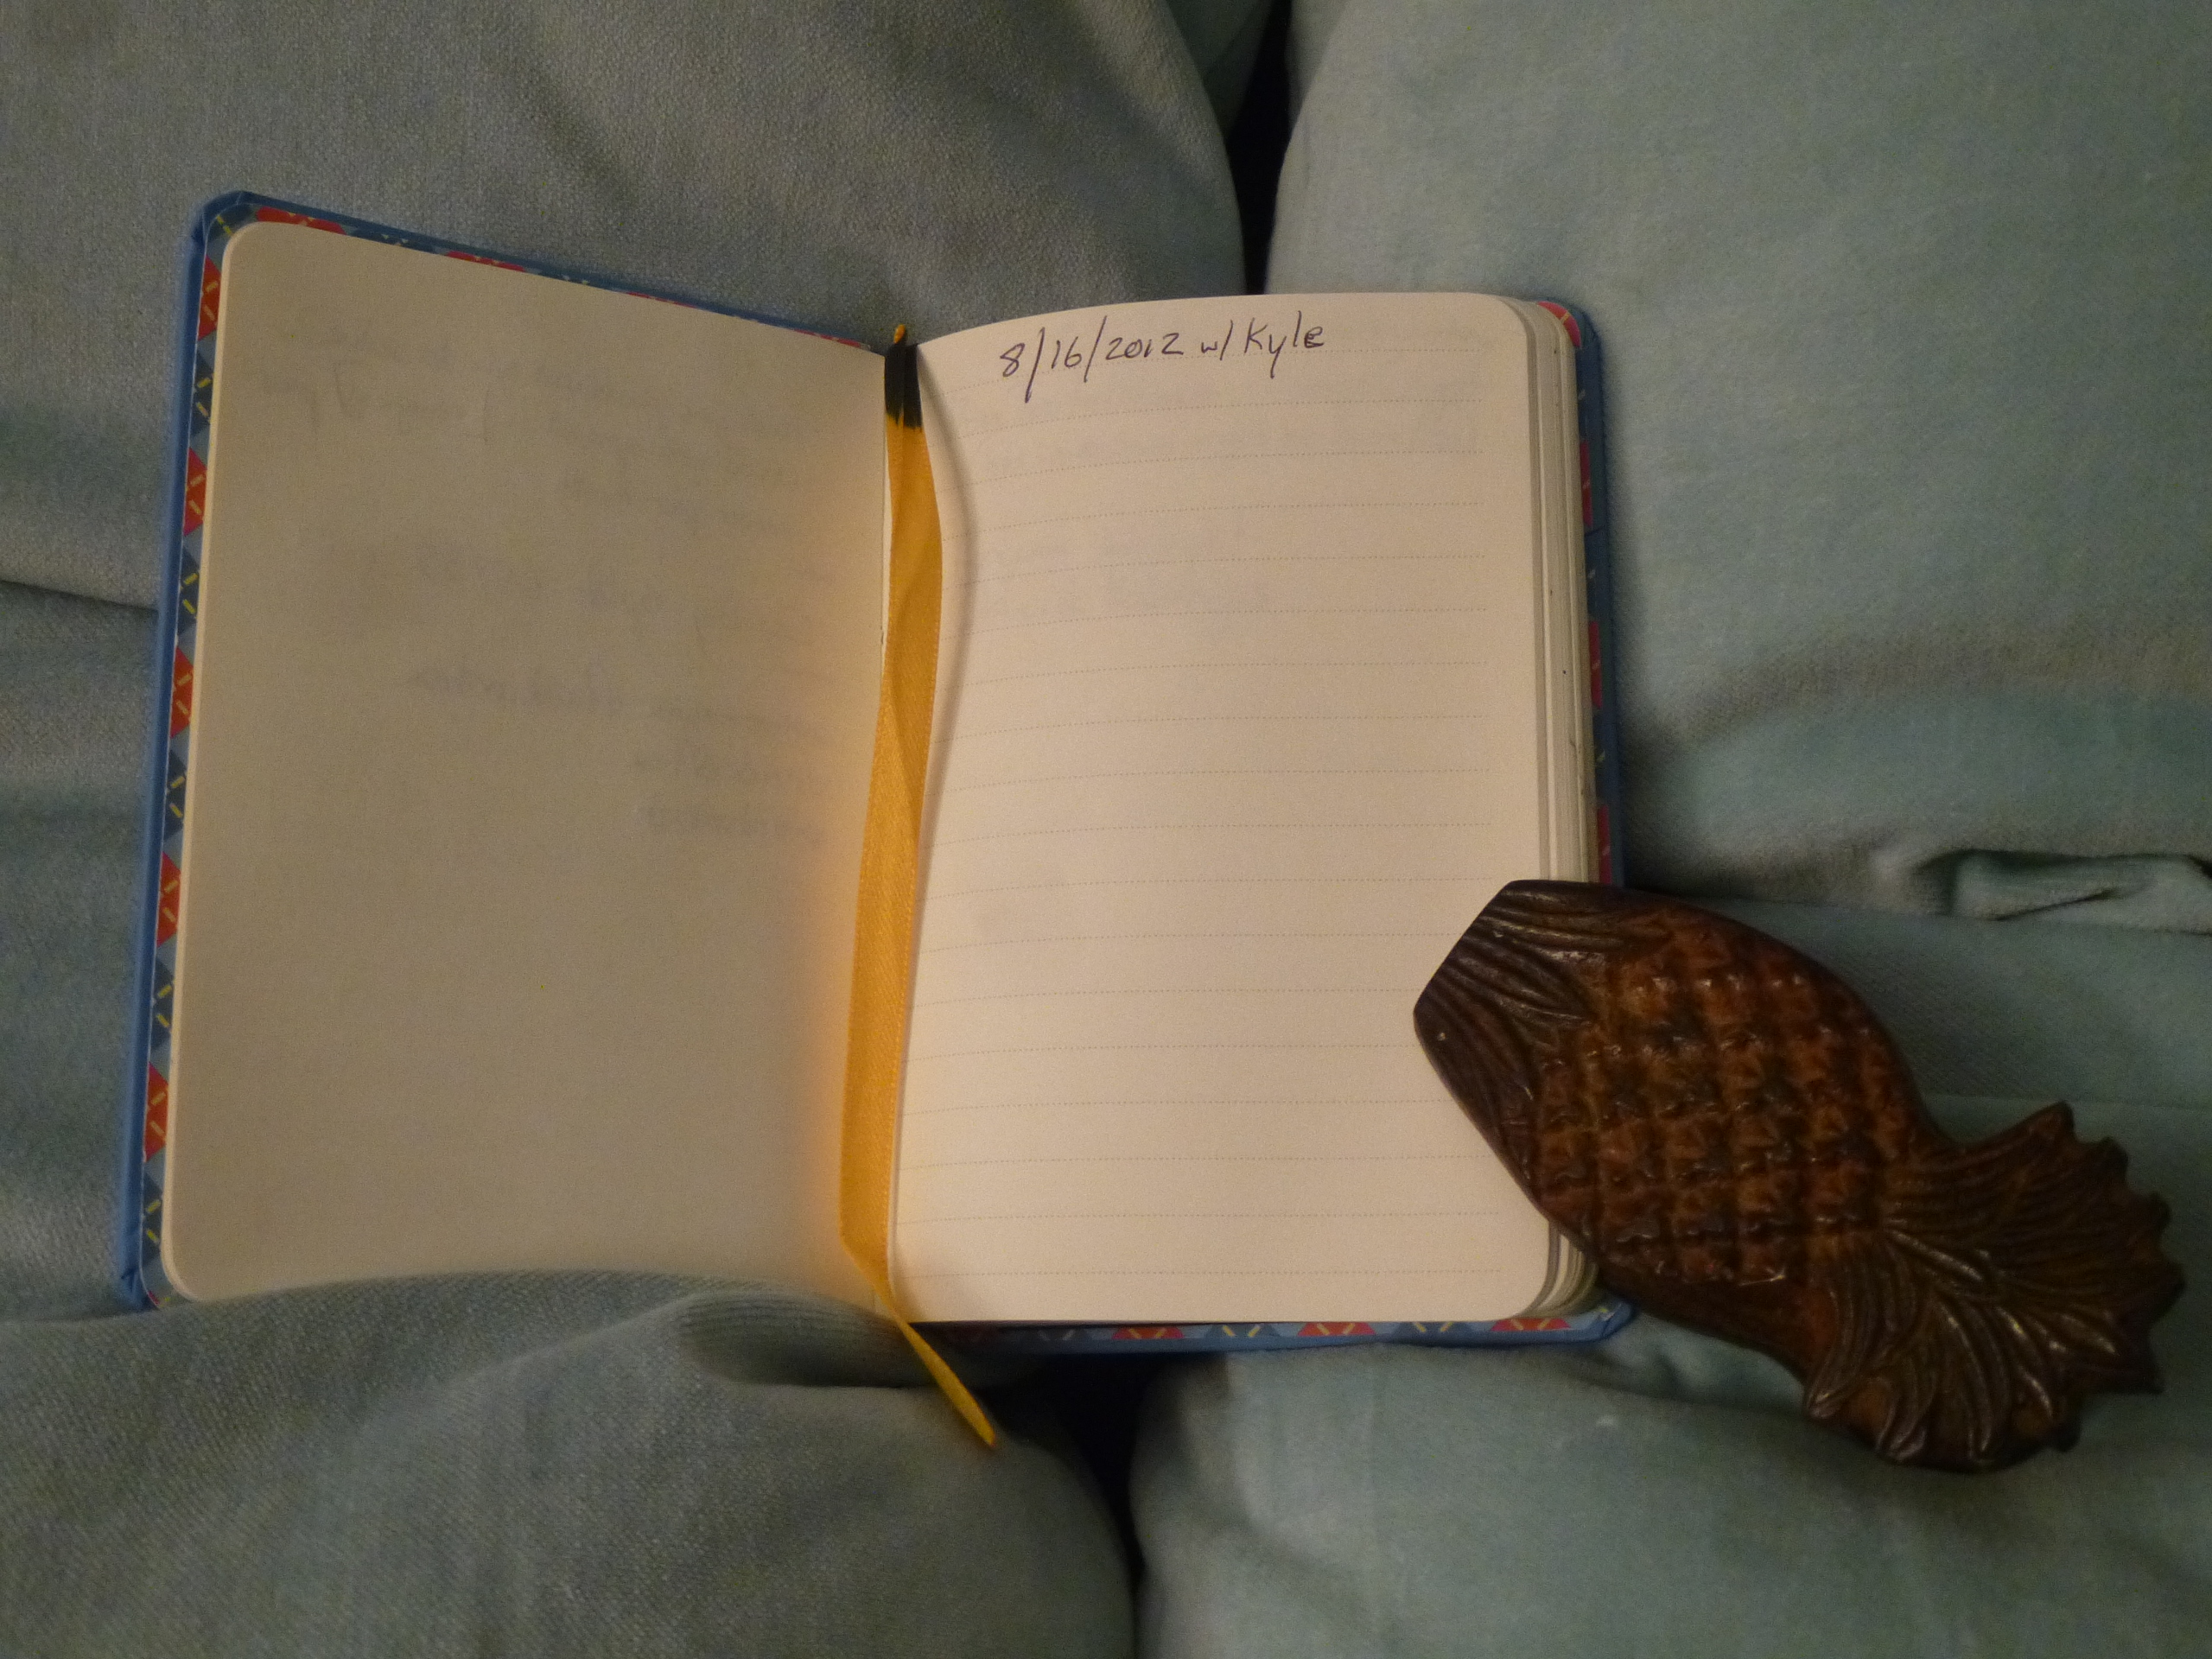 8/16/2012 w/ Kyle